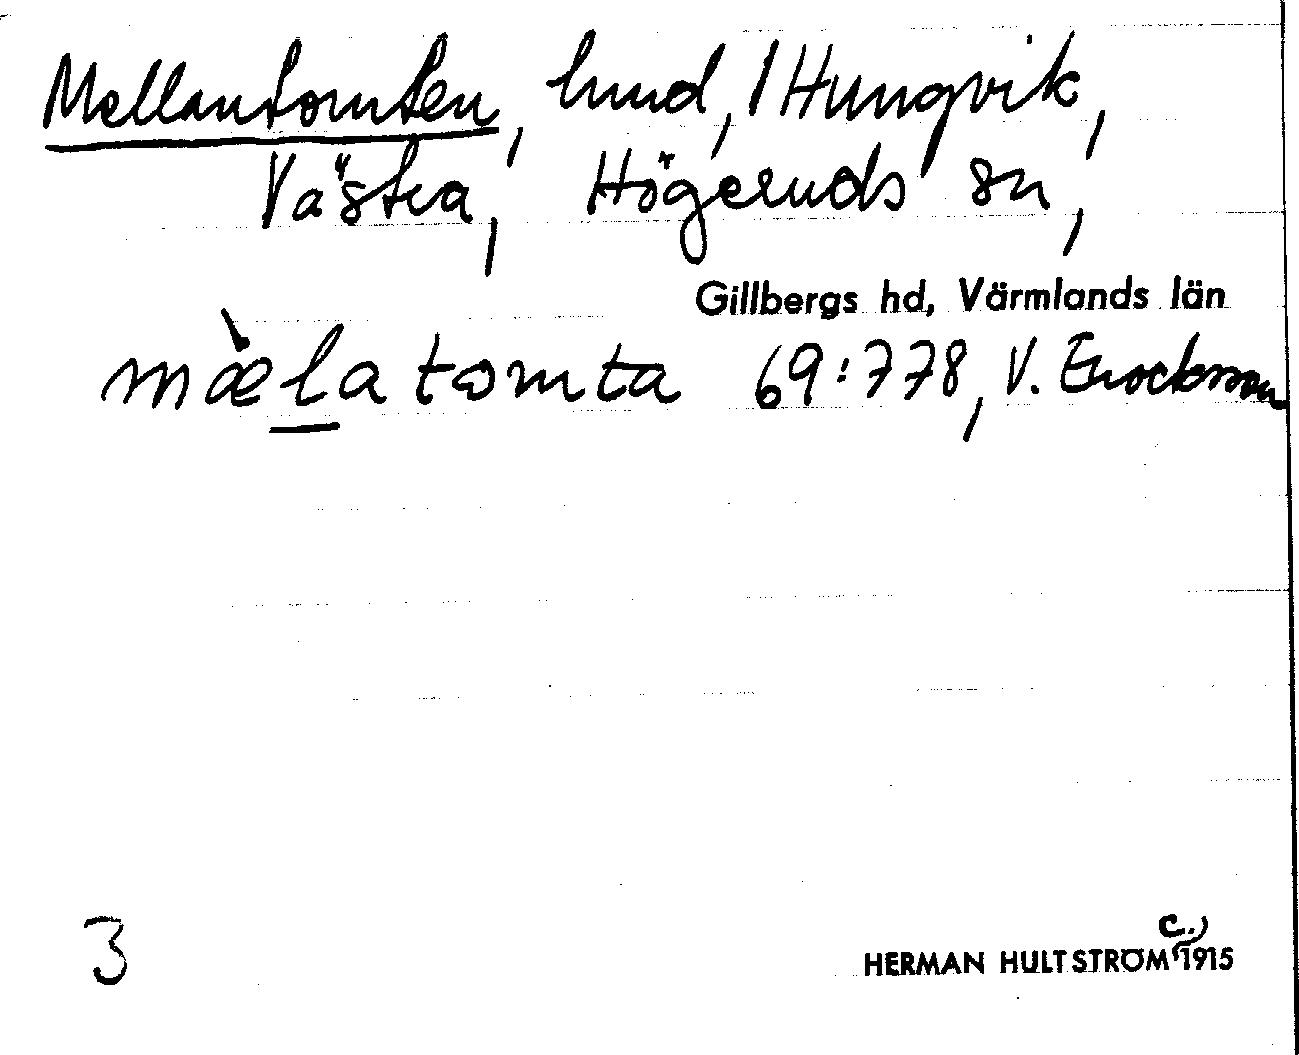 Mellantomten, hmd, 1 Hungvik,
Västra, Högeruds sn,
Gillbergs hd, Värmlands län
mæ̀latomta 69:778, V. Enockson
3
c.
HERMAN HULTSTRÖM 1915